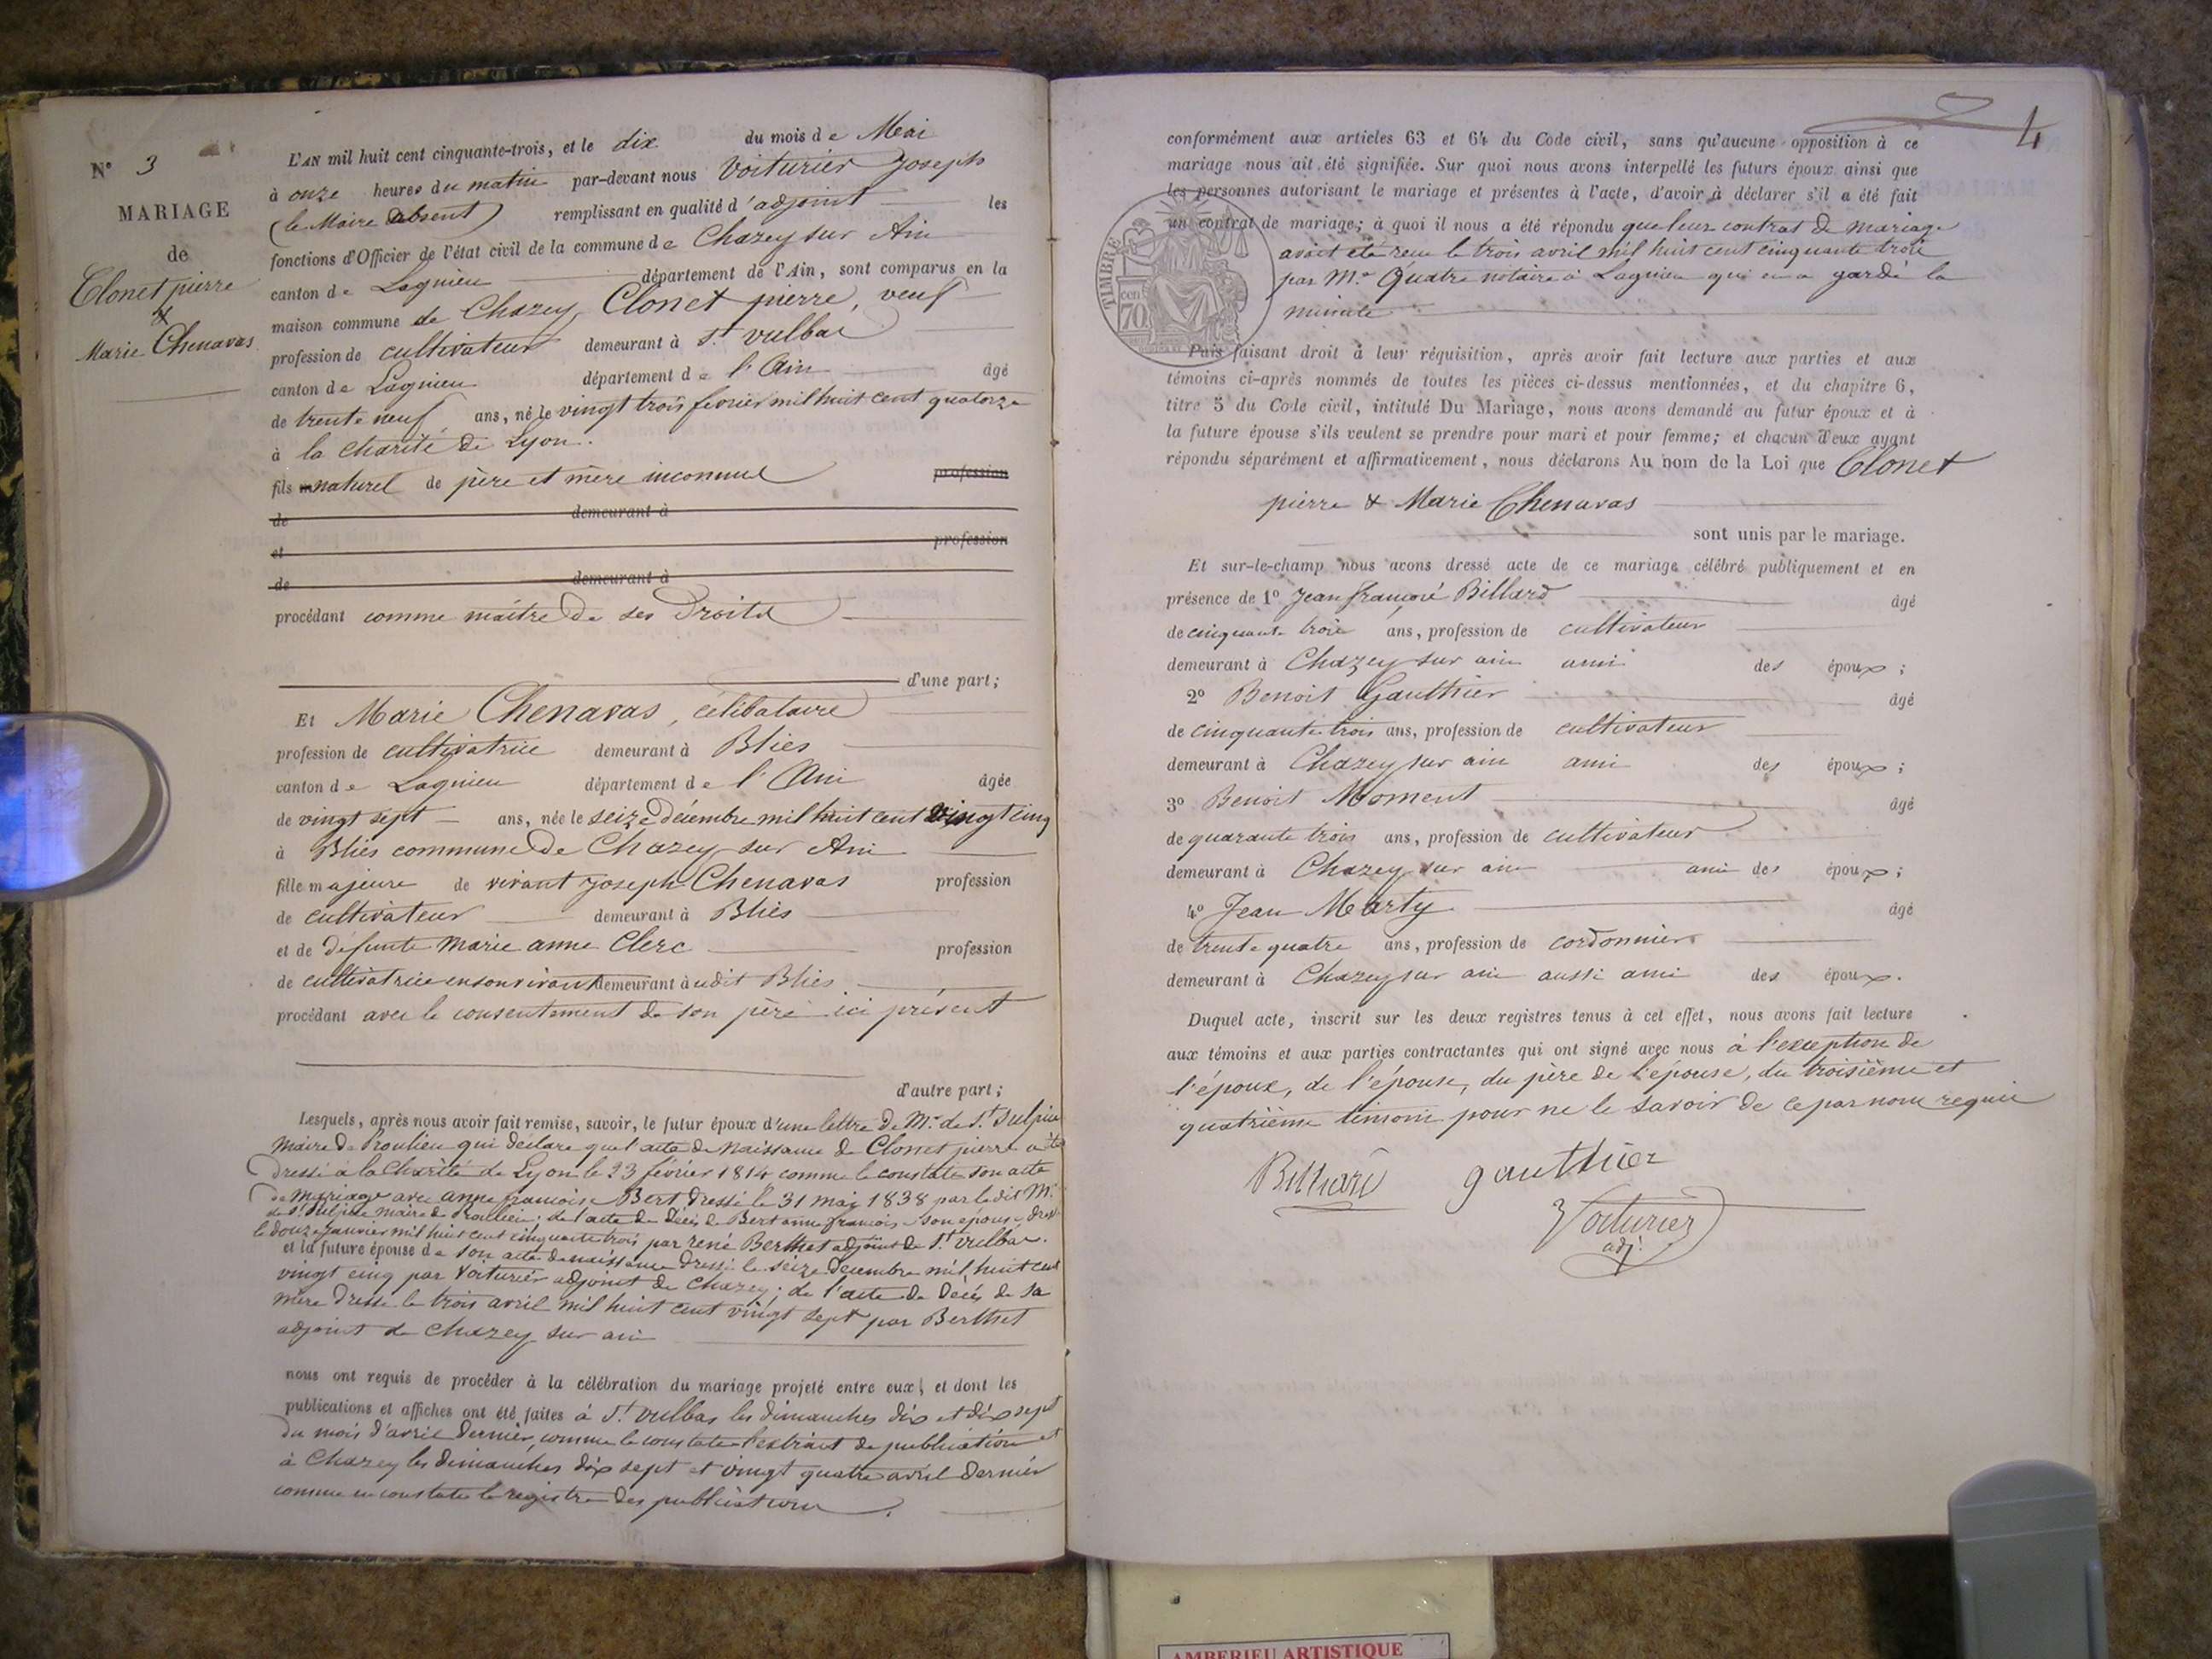 N° 3
MARIAGE
de
Clonet pierre
&
Marie Chenavas
L'AN mil huit cent cinquante-trois, et le dix du mois de Mai
à onze heures du matin par-devant nous Voiturier Joseph
(le Maire absent) remplissant en qualité d'adjoint les
fonctions d'Officier de l'état civil de la commune de Chazey sur Ain
canton de Lagnieu département de l'Ain, sont comparus en la
maison commune de Chazey, Clonet pierre, veuf
profession de cultivateur demeurant à St vulbas
canton de Lagnieu département de l'Ain âgé
de trente neuf ans, né le vingt trois fevrier mil huit cent quatorze
à la Charité de Lyon.
fils naturel de père et mère inconnus profession
de demeurant à
et profession
de demeurant à
procédant comme maître de ses Droits
d'une part;
Et Marie Chenavas, célibataire
profession de cultivatrice demeurant à Bliès
canton de Lagnieu département de l'Ain âgée
de vingt sept ans, née le seize décembre mil huit cent vingt cinq
à Bliès commune de Chazey sur Ain
fille majeure de vivant Joseph Chenavas profession
de cultivateur demeurant à Bliès
et de défunte Marie anne Clerc profession
de cultivatrice en son vivant demeurant audit Bliès
procédant avec le consentement de son père ici présent
d'autre part;
Lesquels, après nous avoir fait remise, savoir, le futur époux d'une lettre de Mr. de St. Sulpice
maire de Proulieu qui déclare que l'acte de naissance de Clonet pierre a été
dressé à la Charité de Lyon le 23 février 1814 comme le constate son acte
de mariage avec anne françoise Bert dressé le 31 mai 1838 par ledit Mr.
de St. Sulpice maire de Proulieu; de l'acte de décès de Bert anne françoise son épouse, dressé
le douze Janvier mil huit cent cinquante trois par rené Berthet adjoint de St. vulbas.
et la future épouse de son acte de naissance dressé le seize décembre mil huit cent
vingt cinq par Voiturier adjoint de Chazey; de l'acte de Décès de sa
mère dressé le trois avril mil huit cent vingt sept par Berthet
adjoint de Chazey sur ain
nous ont requis de procéder à la célébration du mariage projeté entre eux, et dont les
publications et affiches ont été faites à St. Vulbas les dimanches dix et dix sept
du mois d'avril dernier, comme le constate l'extrait de publication et
à Chazey les dimanches dix sept et vingt quatre avril dernier
comme en constate le registre des publications.
4
conformément aux articles 63 et 64 du Code civil, sans qu'aucune opposition à ce
mariage nous ait été signifiée. Sur quoi nous avons interpellé les futurs époux ainsi que
les personnes autorisant le mariage et présentes à l'acte, d'avoir à déclarer s'il a été fait
un contrat de mariage; à quoi il nous a été répondu que leur contrat de mariage
avait été reçu le trois avril mil huit cent cinquante trois
par Me. Quatre notaire à Lagnieu qui en a gardé la
minute
TIMBRE
cent.
70
Puis faisant droit à leur réquisition, après avoir fait lecture aux parties et aux
témoins ci-après nommés de toutes les pièces ci-dessus mentionnées, et du chapitre 6,
titre 5 du Code civil, intitulé Du Mariage, nous avons demandé au futur époux et à
la future épouse s'ils veulent se prendre pour mari et pour femme; et chacun d'eux ayant
répondu séparément et affirmativement, nous déclarons Au nom de la Loi que Clonet
pierre & Marie Chenavas
sont unis par le mariage.
Et sur-le-champ nous avons dressé acte de ce mariage célébré publiquement et en
présence de 1° Jean françois Billard âgé
de cinquante trois ans, profession de cultivateur
demeurant à Chazey sur ain ami des époux;
2° Benoit Gauthier âgé
de cinquante trois ans, profession de cultivateur
demeurant à Chazey sur ain ami des époux;
3° Benoit Moment âgé
de quarante trois ans, profession de cultivateur
demeurant à Chazey sur ain ami des époux;
4° Jean Marty âgé
de trente quatre ans, profession de cordonnier
demeurant à Chazey sur ain aussi ami des époux.
Duquel acte, inscrit sur les deux registres tenus à cet effet, nous avons fait lecture
aux témoins et aux parties contractantes qui ont signé avec nous à l'exception de
l'époux, de l'épouse, du père de l'épouse, du troisième et
quatrième témoin pour ne le savoir de ce par nous requis
Billiard gauthier
Voiturier
adj.
AMBERIEU ARTISTIQUE